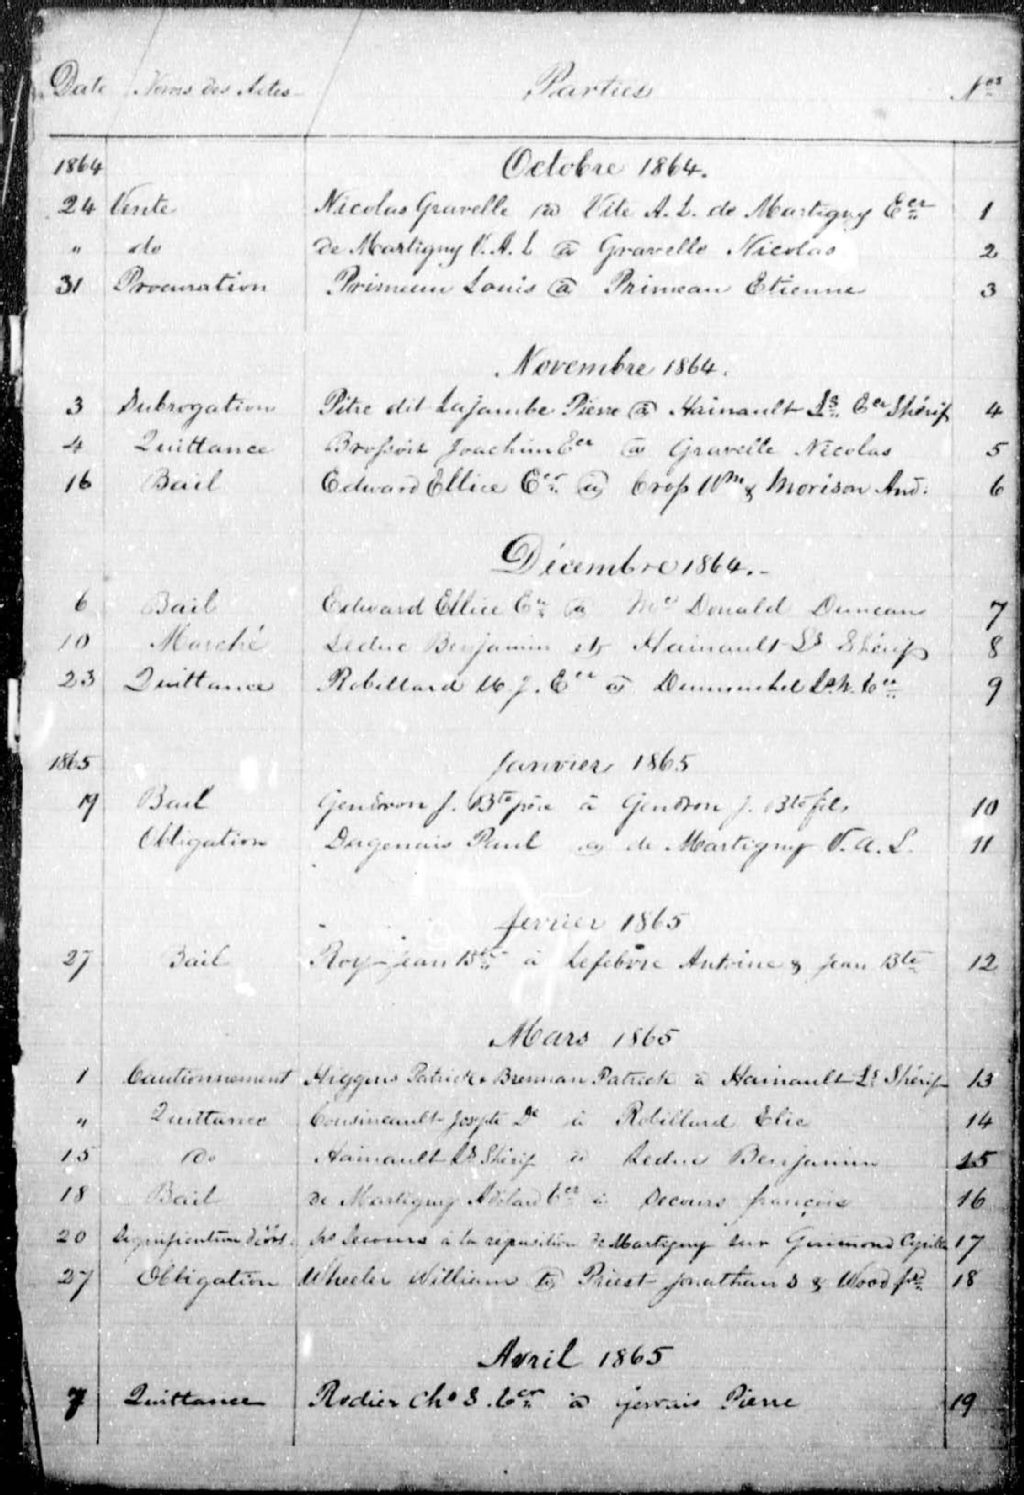 Date Noms des Actes Parties Nos
1864 Octobre 1864.
24 Vente Nicolas Gravelle @ Vite A. L. de Martigny Ecr 1
" do de Martigny V. A. L @ Gravelle Nicolas 2
31 Procuration Primeau Louis @ Primeau Etienne 3
Novembre 1864.
3 Subrogation Pitre dit Lajambe Pierre @ Hainault Ls Ecr Shérif 4
4 Quittance Joachim Ecr @ Gravelle Nicolas 5
16 Bail Edward Ellice Ecr @ Cross Wm & Morison And. 6
Décembre 1864.-
6 Bail Edward Ellice Ecr @ Mc Donald Duncan 7
10 Marché Leduc Benjamin et Hainault Ls Shérif 8
23 Quittance Robillard U. J. Ecr @ Dumouchel Ecr 9
1865 Janvier 1865
19 Bail Gendron J. Bte père à Gendron J. Bte fils 10
Obligation Dagenais Paul @ de Martigny V. A. L. 11
fevrier 1865
27 Bail Roy Jean Bte à Lefebvre Antoine & Jean Bte 12
Mars 1865
1 Cautionnement Higgins Patrick & Brennan Patrick à Hainault Ls Shérif 13
" Quittance Cousineault Joseph Dr à Robillard Elie 14
15 do Hainault Ls Shérif à Leduc Benjamin 15
18 Bail de Martigny Ecr à Decours françois 16
20 Signification à la réquisition de Martigny sur Guimond Cyrille 17
27 Obligation Wheeler William @ Priest Jonathan S & Wood 18
Avril 1865
7 Quittance Rodier Chs S. Ecr à Gervais Pierre 19